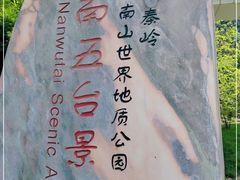 秦岭
南山世界地质公园
南五台景
Nanwutai Scenic A